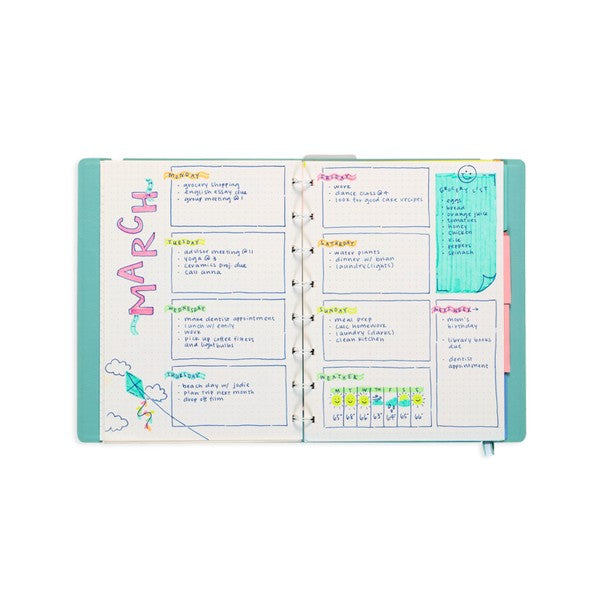 MARCH
MONDAY
· grocery shopping
· english essay due
· group meeting @1
TUESDAY
· advisor meeting @11
· yoga @3
· ceramics proj. due
· call anna
WEDNESDAY
· make dentist appointment
· lunch w/ emily
· work
· pick up coffee filters
and lightbulbs
THURSDAY
· beach day w/ jodie
· plan trip next month
· drop off film
FRIDAY
· work
· dance class @4
· look for good cake recipes
SATURDAY
· water plants
· dinner w/ brian
· laundry (lights)
SUNDAY
· meal prep
· calc homework
· laundry (darks)
· clean kitchen
WEATHER
M T W TH F S S
65° 68° 66° 63° 64° 65° 66°
GROCERY LIST
· eggs
· bread
· orange juice
· tomatoes
· honey
· chicken
· rice
· peppers
· spinach
NEXT WEEK
· mom's
birthday
· library books
due
· dentist
appointment